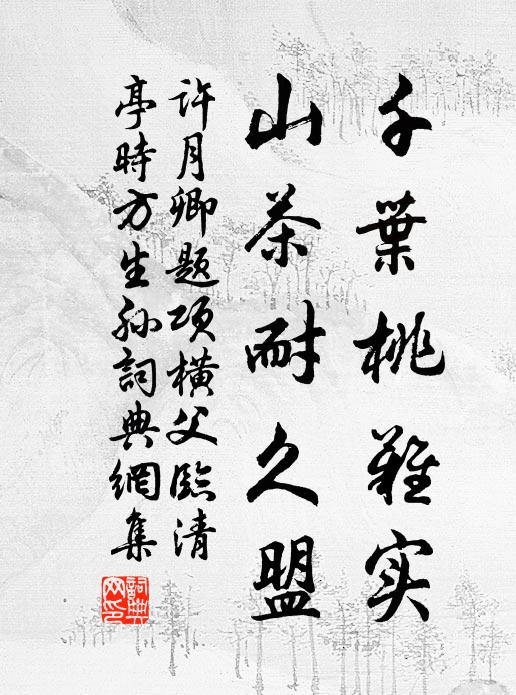 千葉桃難实
山茶耐久盟
许月卿题项橫父臨清
亭時方生孙詞典網集